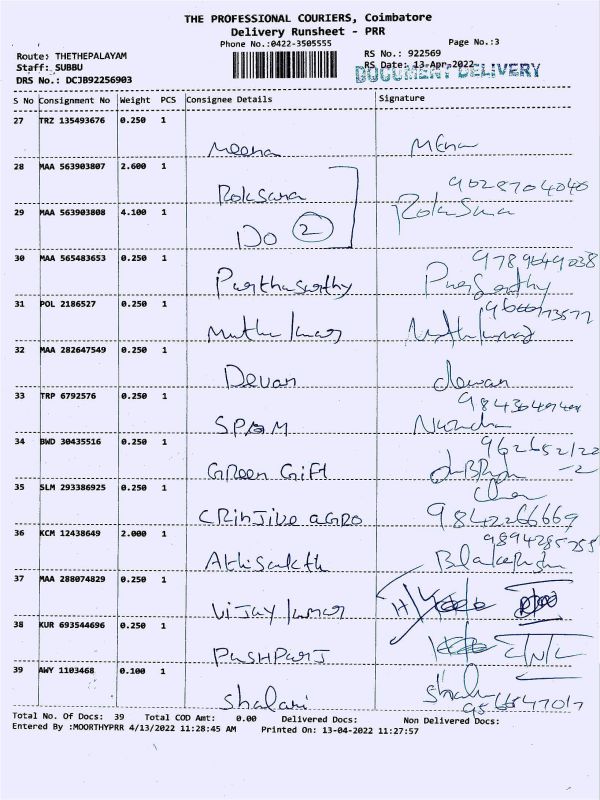 THE PROFESSIONAL COURIERS, Coimbatore
Delivery Runsheet - PRR
Phone No.:0422-3505555
Page No.:3
Route: THETHEPALAYAM
RS No.: 922569
Staff: SUBBU
RS Date: 13-Apr-2022
DRS No.: DCJB92256903
DOCUMENT DELIVERY
S No Consignment No Weight PCS Consignee Details Signature
27 TRZ 135493676 0.250 1
Meena
28 MAA 563903807 2.600 1
Roksana
29 MAA 563903808 4.100 1
Do 2
30 MAA 565483653 0.250 1
Parthasarthy
31 POL 2186527 0.250 1
Muthu kumar
32 MAA 282647549 0.250 1
Devan dewan
33 TRP 6792576 0.250 1
34 BWD 30435516 0.250 1
Green Gift
35 SLM 293386925 0.250 1
9842266669
36 KCM 12438649 2.000 1
9894285755
37 MAA 288074829 0.250 1
Vijay kumar
38 KUR 693544696 0.250 1
39 AWY 1103468 0.100 1
Shalani
Total No. Of Docs: 39 Total COD Amt: 0.00 Delivered Docs: Non Delivered Docs:
Entered By :MOORTHYPRR 4/13/2022 11:28:45 AM Printed On: 13-04-2022 11:27:57